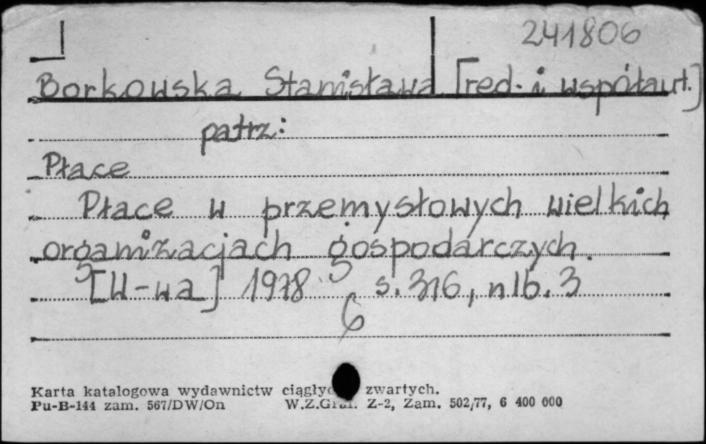 241806
Borkowska Stanisława [red. i współaut.]
patrz:
Płace
Płace w przemysłowych wielkich
organizacjach gospodarczych.
[W-wa] 1978 s. 316, nlb. 3
6
Karta katalogowa wydawnictw zwartych.
Pu-B-144 zam. 567/DW/On W.Z.Graf. Z-2, Zam. 502/77, 6 400 000